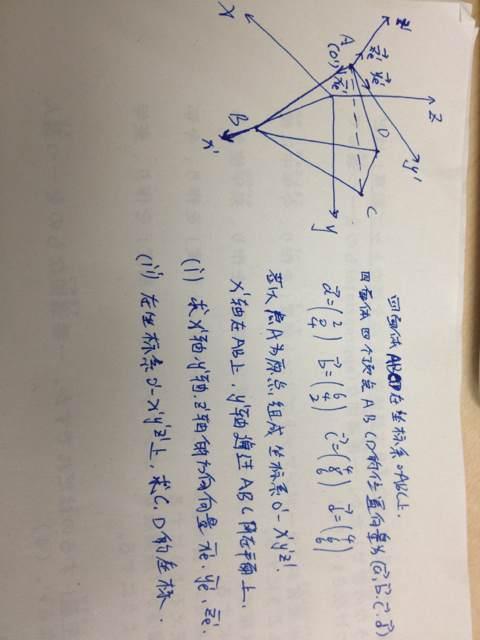 四面体ABCD在坐标系O-ABC上.
四面体四个顶点ABCD的位置向量为(a⃗,b⃗.c⃗.d⃗)
a⃗=(2 2 4) b⃗=(6 4 2) c⃗=(4 8 6) d⃗=(4 6)
若以点A为原点,组成坐标系O'-x'y'z'.
x'轴在AB上,y'轴通过ABC所在平面上.
(i) 求x'轴.y'轴.z'轴的方向向量 x⃗e'.y⃗e'.z⃗e'.
(ii) 在坐标系O'-x'y'z'上,求C.D的坐标.
z'
A
(O')
z⃗e'
y⃗e'
x⃗e'
y'
z
D
C
B
x'
x
y